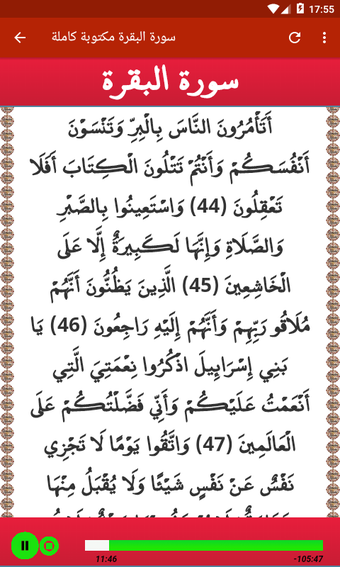 17:55
سورة البقرة مكتوبة كاملة
سورة البقرة
أَتَأْمُرُونَ النَّاسَ بِالْبِرِّ وَتَنْسَوْنَ
أَنْفُسَكُمْ وَأَنْتُمْ تَتْلُونَ الْكِتَابَ أَفَلَا
تَعْقِلُونَ (44) وَاسْتَعِينُوا بِالصَّبْرِ
وَالصَّلَاةِ وَإِنَّهَا لَكَبِيرَةٌ إِلَّا عَلَى
الْخَاشِعِينَ (45) الَّذِينَ يَظُنُّونَ أَنَّهُمْ
مُلَاقُو رَبِّهِمْ وَأَنَّهُمْ إِلَيْهِ رَاجِعُونَ (46) يَا
بَنِي إِسْرَائِيلَ اذْكُرُوا نِعْمَتِيَ الَّتِي
أَنْعَمْتُ عَلَيْكُمْ وَأَنِّي فَضَّلْتُكُمْ عَلَى
الْعَالَمِينَ (47) وَاتَّقُوا يَوْمًا لَا تَجْزِي
نَفْسٌ عَنْ نَفْسٍ شَيْئًا وَلَا يُقْبَلُ مِنْهَا
11:46
-105:47